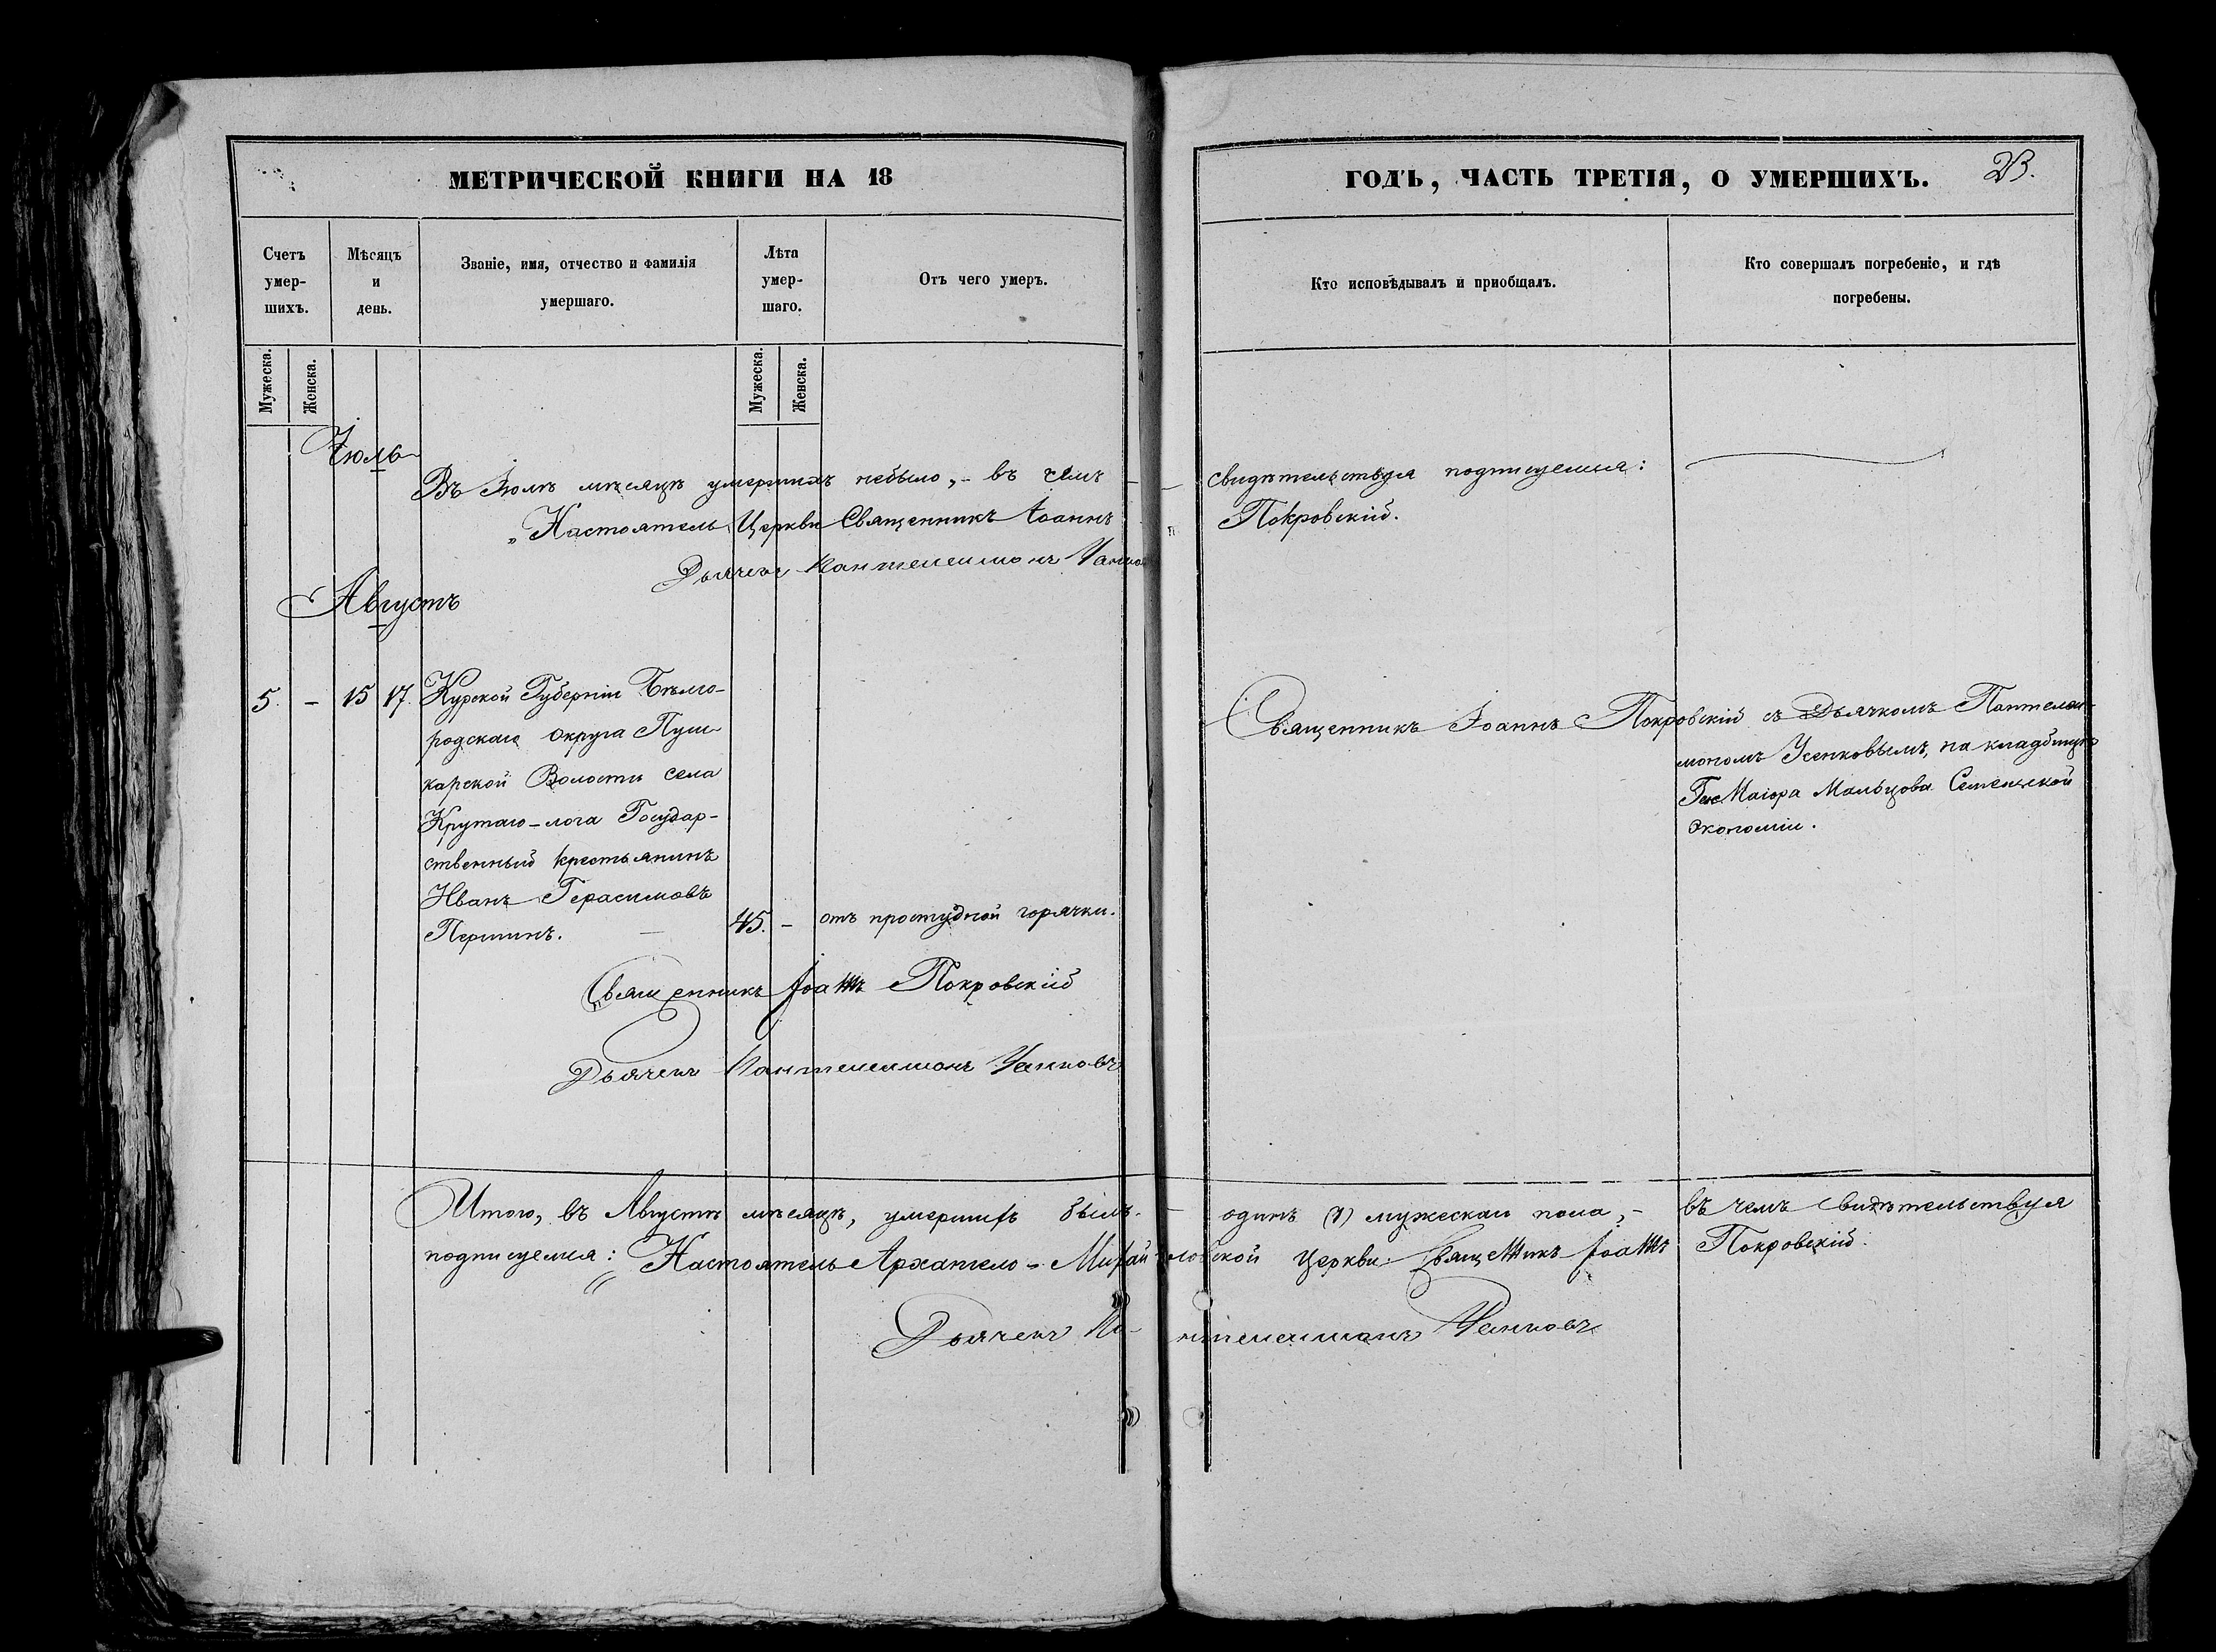 МЕТРИЧЕСКОЙ КНИГИ НА 18
ГОДЪ, ЧАСТЬ ТРЕТІЯ, О УМЕРШИХЪ.
23.
Счетъ умер-шихъ.
Мѣсяцъ и день.
Званіе, имя, отчество и фамилія умершаго.
Лѣта умер-шаго.
Отъ чего умеръ.
Кто исповѣдывалъ и приобщалъ.
Кто совершалъ погребеніе, и гдѣ погребены.
Мужеска.
Женска.
Мужеска.
Женска.
Іюль
Въ Іюлѣ мѣсяцѣ умершихъ небыло, - въ чемъ - свидѣтельствуя подписуемся:
Настоятель Церкви Священникъ Іоаннъ Покровскій.
Дьячекъ Пантелеимонъ
Августъ
5. - 15 17. Курской Губерніи Бѣлго-
родскаго округа Пуш-
карской Волости села
Крутаго-лога Государ-
ственный крестьянинъ
Иванъ Герасимовъ
Першинъ. 45. - отъ простудной горячки.
Священникъ Іоаннъ Покровскій съ Дьячкомъ Пантелеи-
мономъ Усенковымъ, на кладбищѣ
Ген Маіора Мальцова
Экономіи.
Священникъ Іоаннъ Покровскій
Дьячекъ Пантелеимонъ Усенковъ
Итого, въ Августѣ мѣсяцѣ, умершихъ былъ - одинъ (1) мужескаго пола, - въ чемъ свидѣтельствуя
подписуемся: Настоятель Архангело-Михайловской Церкви Священникъ Іоаннъ Покровскій.
Дьячекъ Пантелеимонъ Усенковъ